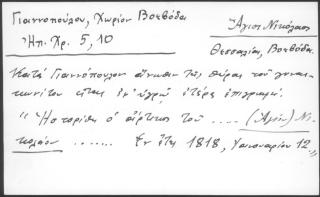 Γιαννοπούλου, Χωρίον Βοεβόδα
Ἅγιος Νικόλαος
Ἠπ. Χρ. 5, 10
Θεσσαλίας, Βοεβόδα.
Κατὰ Γιαννόπουλον ἄνωθεν τῆς θύρας τοῦ γυναι-
κωνίτου εἶναι ἐν ὑγρῷ ἑτέρα ἐπιγραφή.
"Ἱστορίθη ὁ τοῦ .... (Ἁγίου) Νι-
κολάου ....... Ἐν ἔτει 1818, Ἰαννουαρίου 12."